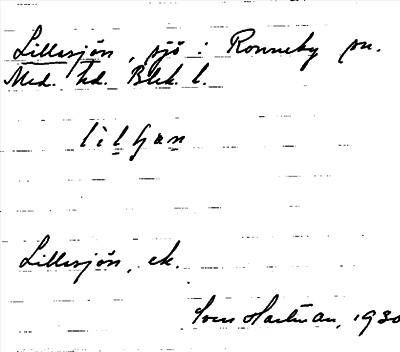 Lillasjön, sjö i Ronneby sn.
Med. hd. Blek. l.
Lillesjön, ek.
Sven Hartman, 1930